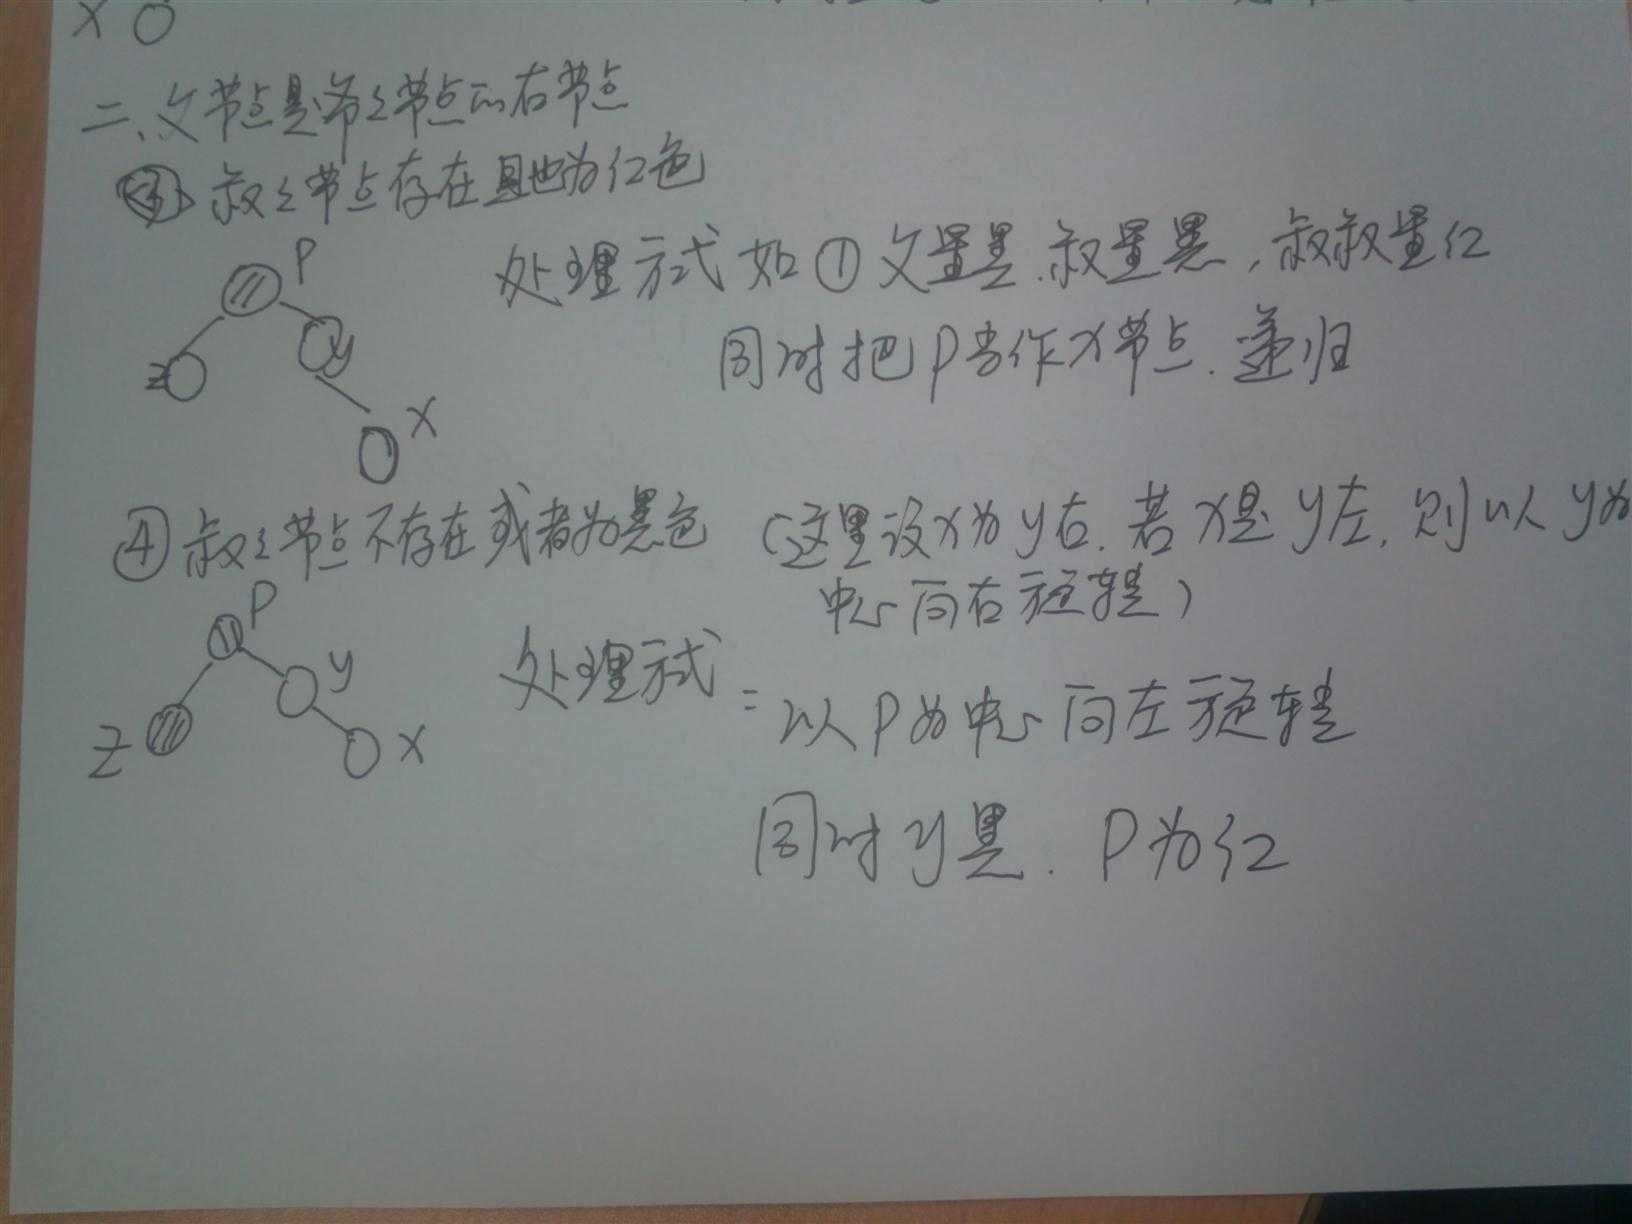 x
二、父节点是爷爷节点的右节点
③ 叔叔节点存在且也为红色
P
处理方式如①父置黑.叔置黑,叔叔置红
z
y
同时把P当作x节点.递归
x
④叔叔节点不存在或者为黑色 (这里设x为y右.若x是y左,则以y为
中心向右旋转)
P
处理方式:
y
z
以P为中心向左旋转
x
同时y黑.P为红